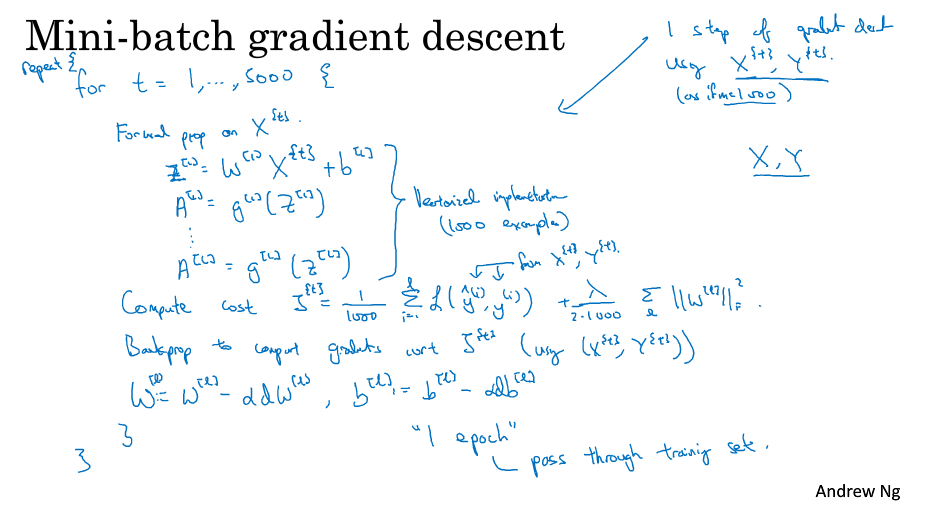 Mini-batch gradient descent
repeat {
for t = 1, ..., 5000 {
1 step of gradient descent
using X^{t}, Y^{t}.
(as if m=1000)
X, Y
Forward prop on X^{t}.
Z^[1] = W^[1] X^{t} + b^[1]
A^[1] = g^[1] (Z^[1])
⋮
A^[L] = g^[L] (Z^[L])
Vectorized implementation
(1000 examples)
from X^{t}, Y^{t}.
Compute cost J^{t} = 1/1000 Σ_{i=1}^{l} L(ŷ^(i), y^(i)) + λ/(2·1000) Σ_l ||W^[l]||_F^2.
Backprop to compute gradients wrt J^{t} (using (X^{t}, Y^{t}))
W^[l] := W^[l] - αdW^[l], b^[l] := b^[l] - αdb^[l]
}
}
"1 epoch"
pass through training set.
Andrew Ng